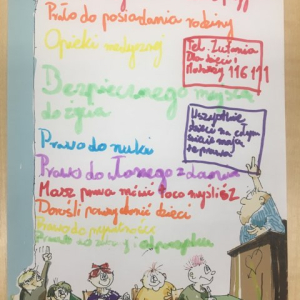 Prawo do posiadania rodziny
Opieki medycznej
Tel. Zufania
Dla dzieci i
Młodzieży 116 111
Bezpiecznego miejsca
do życia
Wszystkie
dzieci na całym
świecie mają
te prawa
Prawo do nuki
Prawo do własnego zdania
Masz prawo mówić to co myślisz
Dorośli
dzieci
Prawo do prywatności
Prawo do